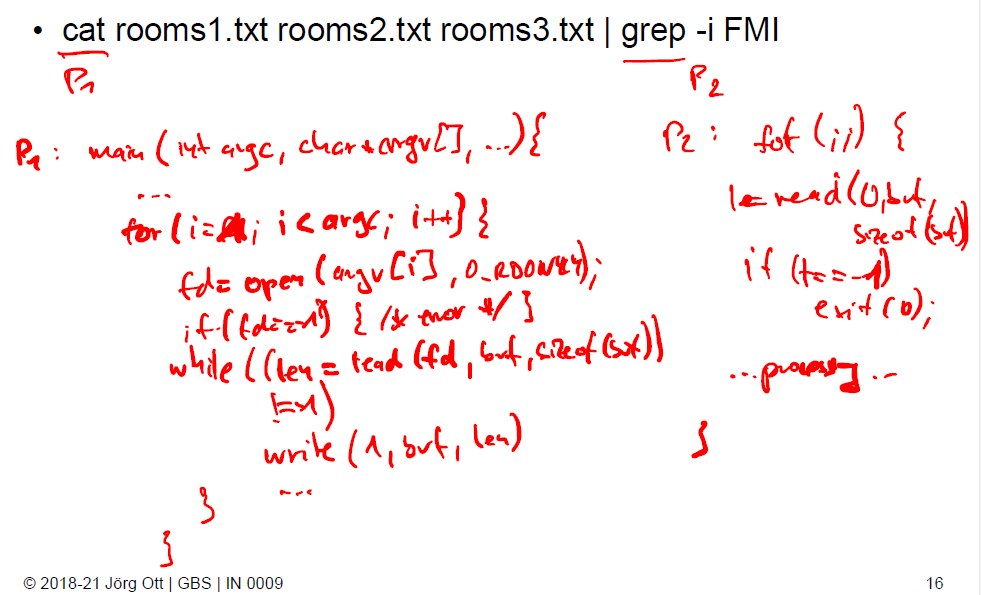 • cat rooms1.txt rooms2.txt rooms3.txt | grep -i FMI
P1
P2
P1 : main (int argc, char* argv[], ...){
...
for (i=1; i < argc; i++) {
fd= open (argv[i], O_RDONLY);
if (fd==-1) { /* error */ }
while ((len = read (fd, buf, sizeof(buf))
!=-1)
write (1, buf, len)
...
}
}
P2 : for (;;) {
l= read (0, buf,
sizeof(buf))
if (l==-1)
exit (0);
... processing ...
}
© 2018-21 Jörg Ott | GBS | IN 0009
16